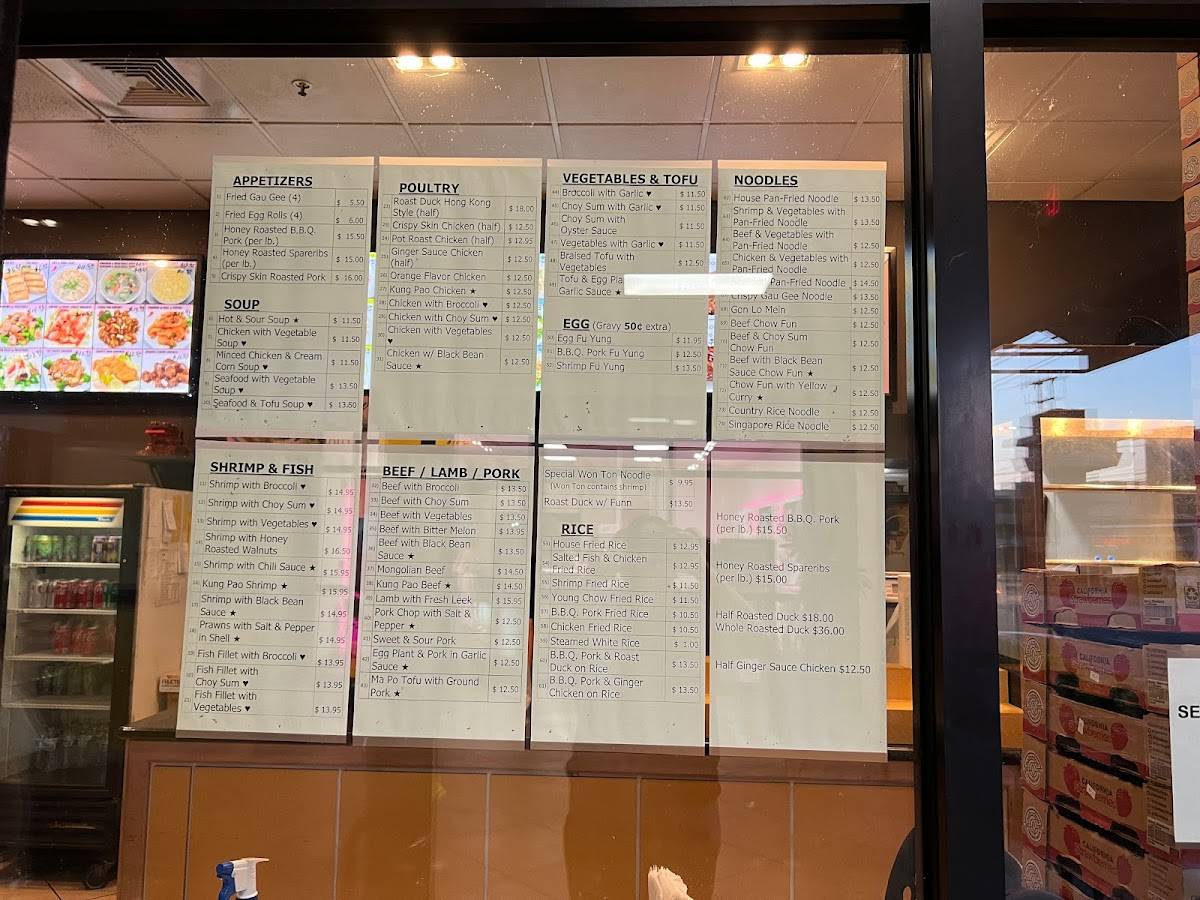 APPETIZERS
Fried Gau Gee (4) $ 5.50
Fried Egg Rolls (4) $ 6.00
Honey Roasted B.B.Q.
Pork (per lb.) $ 15.50
Honey Roasted Spareribs
(per lb.) $ 15.00
Crispy Skin Roasted Pork $ 16.00
SOUP
Hot & Sour Soup ★ $ 11.50
Chicken with Vegetable
Soup ♥ $ 11.50
Minced Chicken & Cream
Corn Soup ♥ $ 11.50
Seafood with Vegetable
Soup ♥ $ 13.50
Seafood & Tofu Soup ♥ $ 13.50
POULTRY
Roast Duck Hong Kong
Style (half) $ 18.00
Crispy Skin Chicken (half) $ 12.50
Pot Roast Chicken (half) $ 12.95
Ginger Sauce Chicken
(half) $ 12.50
Orange Flavor Chicken $ 12.50
Kung Pao Chicken ★ $ 12.50
Chicken with Broccoli ♥ $ 12.50
Chicken with Choy Sum ♥ $ 12.50
Chicken with Vegetables
♥ $ 12.50
Chicken w/ Black Bean
Sauce ★ $ 12.50
VEGETABLES & TOFU
Broccoli with Garlic ♥ $ 11.50
Choy Sum with Garlic ♥ $ 11.50
Choy Sum with
Oyster Sauce $ 11.50
Vegetables with Garlic ♥ $ 11.50
Braised Tofu with
Vegetables $ 12.50
Tofu & Egg
Garlic Sauce ★
EGG (Gravy 50¢ extra)
Egg Fu Yung $ 11.95
B.B.Q. Pork Fu Yung $ 12.50
Shrimp Fu Yung $ 13.50
NOODLES
House Pan-Fried Noodle $ 13.50
Shrimp & Vegetables with
Pan-Fried Noodle $ 13.50
Beef & Vegetables with
Pan-Fried Noodle $ 12.50
Chicken & Vegetables with
Pan-Fried Noodle $ 12.50
Pan-Fried Noodle $ 14.50
Crispy Gau Gee Noodle $ 13.50
Gon Lo Mein $ 12.50
Beef Chow Fun $ 12.50
Beef & Choy Sum
Chow Fun $ 12.50
Beef with Black Bean
Sauce Chow Fun ★ $ 12.50
Chow Fun with Yellow
Curry ★ $ 12.50
Country Rice Noodle $ 12.50
Singapore Rice Noodle $ 12.50
SHRIMP & FISH
Shrimp with Broccoli ♥ $ 14.95
Shrimp with Choy Sum ♥ $ 14.95
Shrimp with Vegetables ♥ $ 14.95
Shrimp with Honey
Roasted Walnuts $ 16.50
Shrimp with Chili Sauce ★ $ 15.95
Kung Pao Shrimp ★ $ 15.95
Shrimp with Black Bean
Sauce ★ $ 14.95
Prawns with Salt & Pepper
in Shell ★ $ 14.95
Fish Fillet with Broccoli ♥ $ 13.95
Fish Fillet with
Choy Sum ♥ $ 13.95
Fish Fillet with
Vegetables ♥ $ 13.95
BEEF / LAMB / PORK
Beef with Broccoli $ 13.50
Beef with Choy Sum $ 13.50
Beef with Vegetables $ 13.50
Beef with Bitter Melon $ 13.95
Beef with Black Bean
Sauce ★ $ 13.50
Mongolian Beef $ 14.50
Kung Pao Beef ★ $ 14.50
Lamb with Fresh Leek $ 15.95
Pork Chop with Salt &
Pepper ★ $ 12.50
Sweet & Sour Pork $ 12.50
Egg Plant & Pork in Garlic
Sauce ★ $ 12.50
Ma Po Tofu with Ground
Pork ★ $ 12.50
Special Won Ton Noodle
(Won Ton contains shrimp) $ 9.95
Roast Duck w/ Funn $13.50
RICE
House Fried Rice $ 12.95
Salted Fish & Chicken
Fried Rice $ 12.95
Shrimp Fried Rice $ 11.50
Young Chow Fried Rice $ 11.50
B.B.Q. Pork Fried Rice $ 10.50
Chicken Fried Rice $ 10.50
Steamed White Rice $ 1.00
B.B.Q. Pork & Roast
Duck on Rice $ 13.50
B.B.Q. Pork & Ginger
Chicken on Rice $ 13.50
Honey Roasted B.B.Q. Pork
(per lb.) $15.50
Honey Roasted Spareribs
(per lb.) $15.00
Half Roasted Duck $18.00
Whole Roasted Duck $36.00
Half Ginger Sauce Chicken $12.50
CALIFORNIA
CALIFORNIA
CALIFORNIA
CALIFORNIA
SE